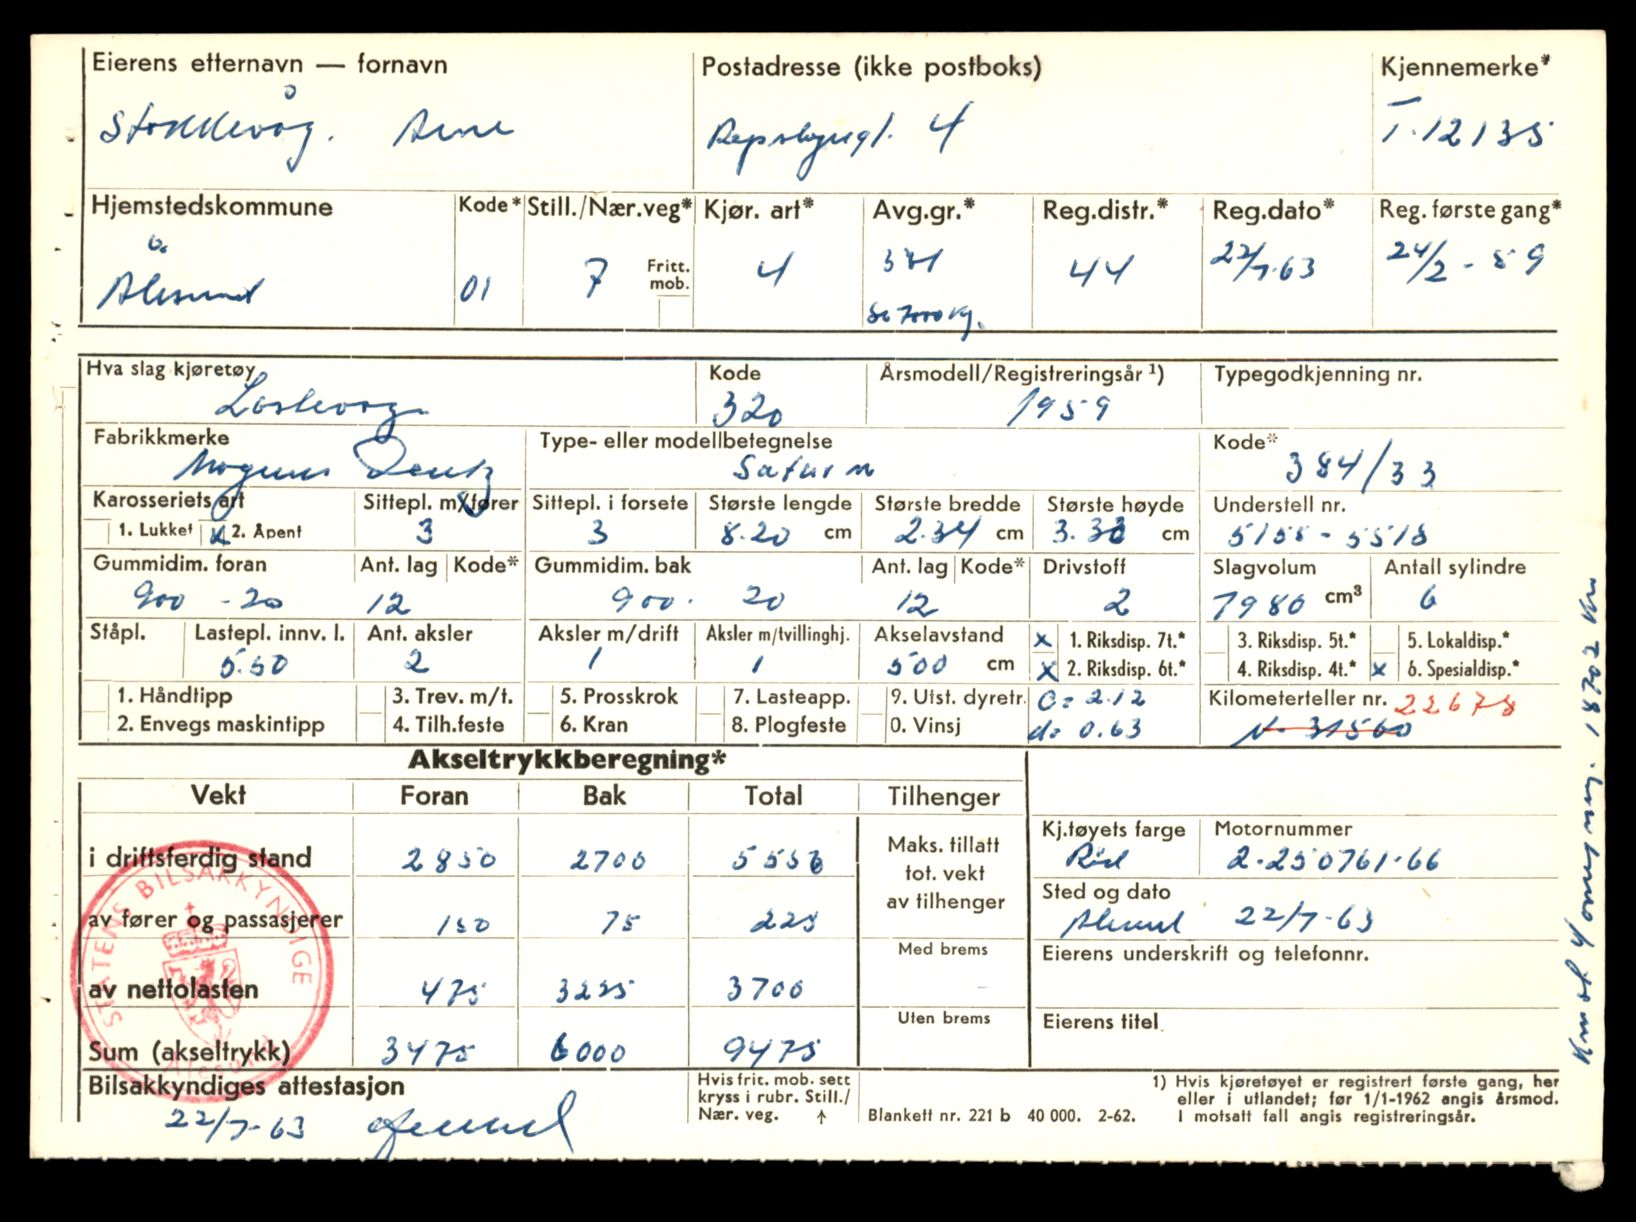 Eierens etternavn — fornavn Postadresse (ikke postboks) Kjennemerke*
Stokkevåg. Arne 4 T-12135
Hjemstedskommune Kode* Still./Nær.veg* Kjør. art* Avg.gr.* Reg.distr.* Reg.dato* Reg. første gang*
Ålesund 01 7 Fritt. mob. 4 44 22/7-63 24/2-59
Hva slag kjøretøy Kode Årsmodell/Registreringsår ¹) Typegodkjenning nr.
Lastevogn 320 1959
Fabrikkmerke Type- eller modellbetegnelse Kode*
Magirus Deutz Saturn 384/33
Karosseriets art Sittepl. m/fører Sittepl. i forsete Største lengde Største bredde Største høyde Understell nr.
1. Lukket x 2. Åpent 3 3 8.20 cm 2.34 cm cm
Gummidim. foran Ant. lag Kode* Gummidim. bak Ant. lag Kode* Drivstoff Slagvolum Antall sylindre
900 - 20 12 900 - 20 12 2 7980 cm³ 6
Ståpl. Lastepl. innv. l. Ant. aksler Aksler m/drift Aksler m/tvillinghj. Akselavstand x 1. Riksdisp. 7t.* 3. Riksdisp. 5t.* 5. Lokaldisp.*
5.50 2 1 1 500 cm x 2. Riksdisp. 6t.* 4. Riksdisp. 4t.* x 6. Spesialdisp.*
1. Håndtipp 3. Trev. m/t. 5. Prosskrok 7. Lasteapp. 9. Utst. dyretr. C= 2.12 Kilometerteller nr. 22678
2. Envegs maskintipp 4. Tilh.feste 6. Kran 8. Plogfeste 0. Vinsj d= 0.63 31560
Akseltrykkberegning*
Vekt Foran Bak Total Tilhenger
i driftsferdig stand 2850 2700 5550 Maks. tillatt tot. vekt av tilhenger
Kj.tøyets farge Motornummer
Rød 2-250761-66
av fører og passasjerer 150 75 225
Sted og dato
Ålesund 22/7-63
Med brems
Eierens underskrift og telefonnr.
av nettolasten 475 3225 3700
Uten brems
Eierens titel
Sum (akseltrykk) 3475 6000 9475
STATENS BILSAKKYNDIGE
Ålesund
Bilsakkyndiges attestasjon
22/7-63
Hvis frit. mob. sett
kryss i rubr. Still./
Nær. veg. ↑
Blankett nr. 221 b 40 000. 2-62.
1) Hvis kjøretøyet er registrert første gang, her
eller i utlandet; før 1/1-1962 angis årsmod.
I motsatt fall angis registreringsår.
18702 km